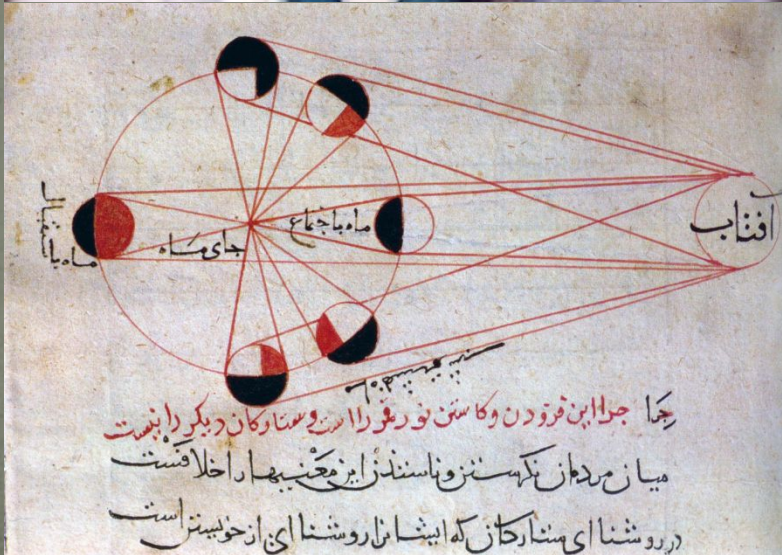 آفتاب
ماه باجتماع
جای ماه
ماه باستقبال
چرا این فزودن و کاستن نور قمر را است و ستارکان دیکر را نیست
میان مردمان نکرستن و دانستن این معنیها را خلافست
در روشنا ای ستارکان که ایشانرا روشنا ای از خویشتن است